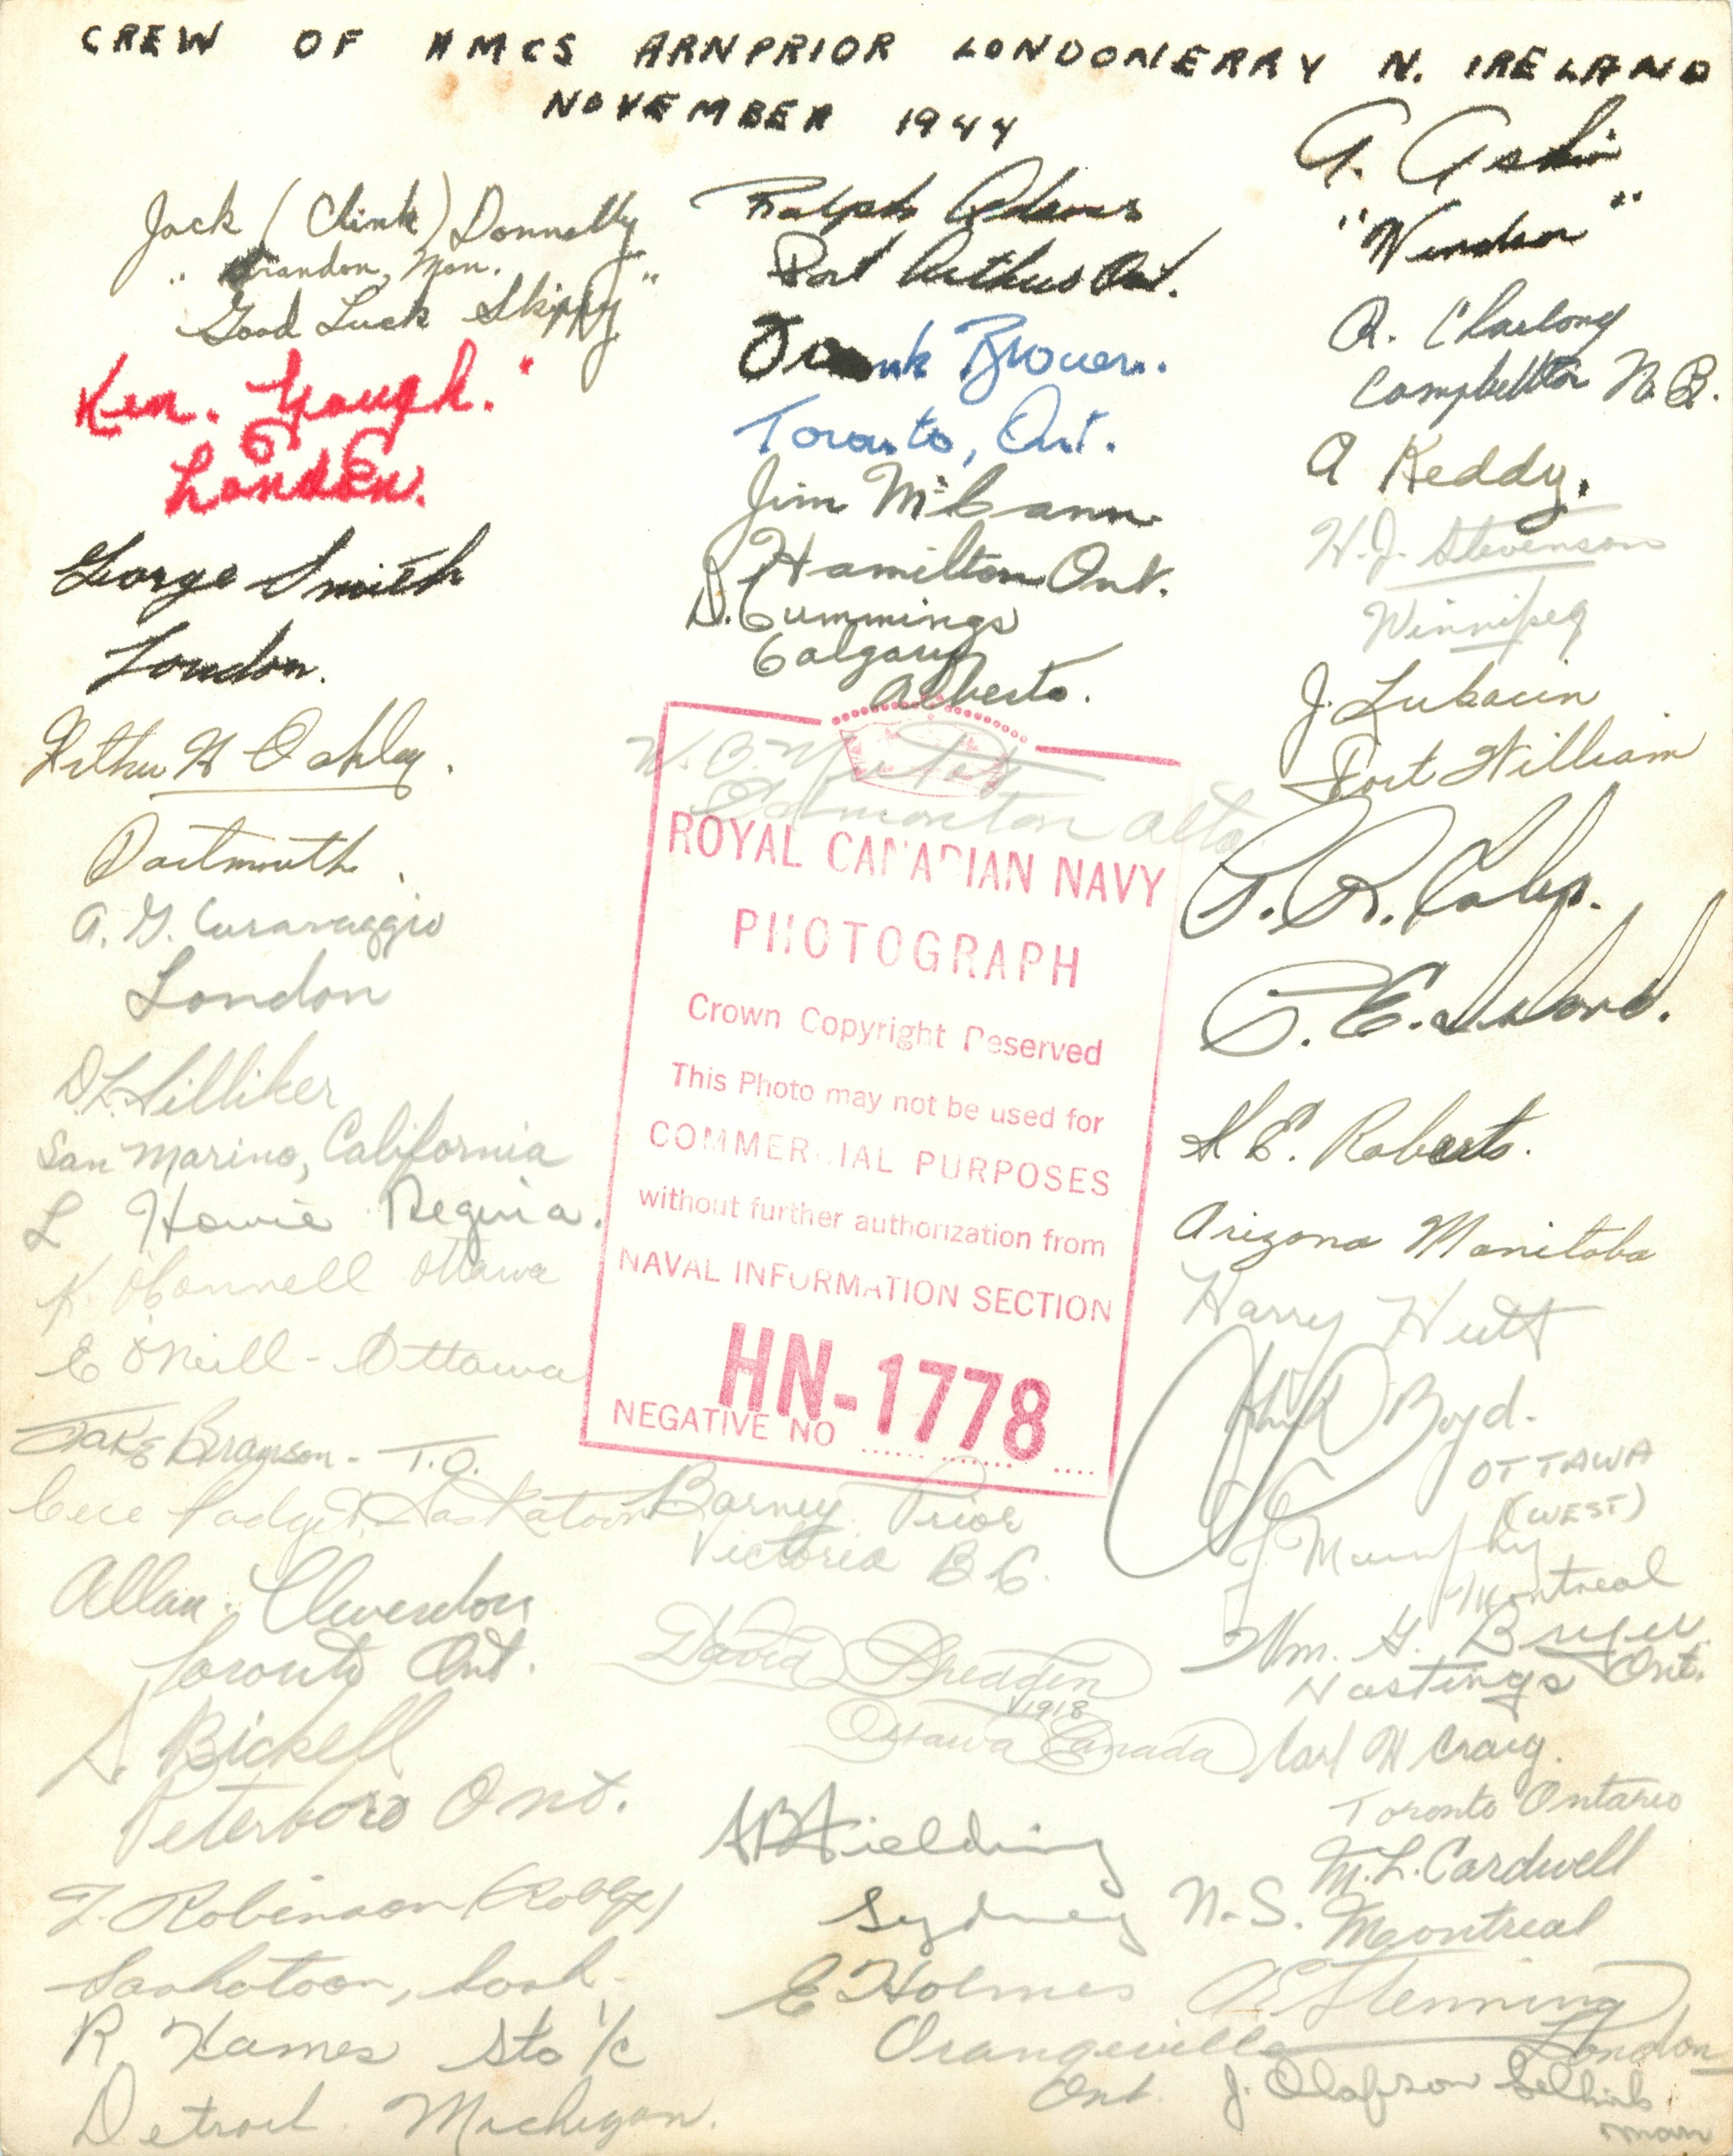 CREW OF HMCS ARNPRIOR LONDONERRY N. IRELAND
NOVEMBER 1944
Jack (Clink) Donnelly
"Brandon, Man.
Good Luck Skippy"
Ken. Gough.
London.
George Smith
London.
Arthur H Oakley.
Dartmouth.
A. G. Caravaggio
London
D.L. Silliker
San Marino, California
L Howie Regina.
K O'Connell Ottawa
E O'Neill - Ottawa
Jake Bramson - T.O.
Cece Padget, Saskatoon
Allan. Clevendon
Toronto Ont.
A. Bickell
Peterboro Ont.
T. Robinson (Robby)
Saskatoon, Sask.
R. Hames Sto 1/c
Detroit Michigan.
Ralph Adams
Port Arthur Ont.
Frank Brown.
Toronto, Ont.
Jim McCann
Hamilton Ont.
D. Cummings
Calgary
Alberta.
W. O.
Edmonton Alta
ROYAL CANADIAN NAVY
PHOTOGRAPH
Crown Copyright Reserved
This Photo may not be used for
COMMERCIAL PURPOSES
without further authorization from
NAVAL INFORMATION SECTION
HN-1778
NEGATIVE NO
Barney Prior
Victoria B.C.
David Shedden
1918
Ottawa Canada
Fielding
Sydney N.S.
E Holmes
Orangeville
Ont.
A. Askin
"Windsor"
R. Charlong
Campbellton N.B.
A Keddy.
W.J. Stevenson
Winnipeg
J. Lukacin
Fort William
R.
E.
E. Roberts.
Arizona Manitoba
Harry Hutt
Boyd.
OTTAWA
(WEST)
J. Murphy
Montreal
Wm. G.
Hastings Ont.
Carl H Craig.
Toronto Ontario
M.L. Cardwell
Montreal
A.E. Stenning
London
J. Olafson Selkirk
Man